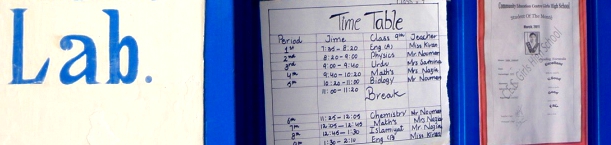 Lab.
Time Table
Period Time Class 9th Teacher
1st 7:35-8:20 Eng (A) Miss Kiran
2nd 8:20-9:00 Physics Mr. Nouman
3rd 9:00-9:40 Urdu Mrs Samina
4th 9:40-10:20 Math's Mrs Nagin
5th 10:20-11:00 Biology Mr. Nouman
11:00-11:20 Break
6th 11:25-12:05 Chemistry Mr Nouman
7th 12:05-12:45 Math's Mrs Nagin
8th 12:45-1:30 Islamiyat Mr Nagin
9th 1:30-2:10 Eng (B) Miss Kiran
Community Education Centre Girls High School
Student Of The Month